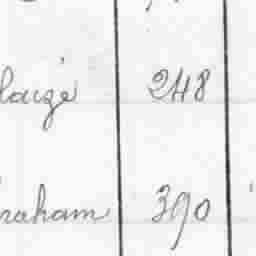 louzé 248
raham 390